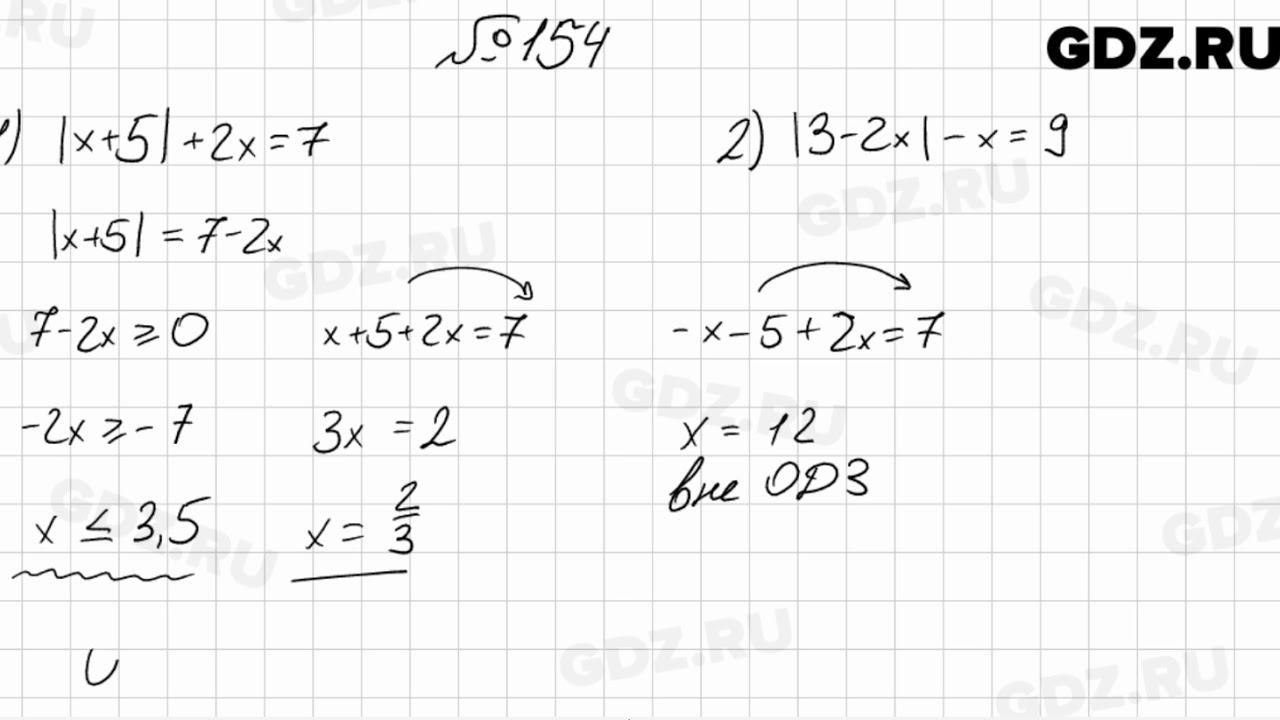 №154
GDZ.RU
1) |x+5|+2x=7
2) |3-2x|-x=9
|x+5|=7-2x
7-2x≥0
x+5+2x=7
-x-5+2x=7
-2x≥-7
3x=2
x=12
вне ОДЗ
x≤3,5
x=2/3
U